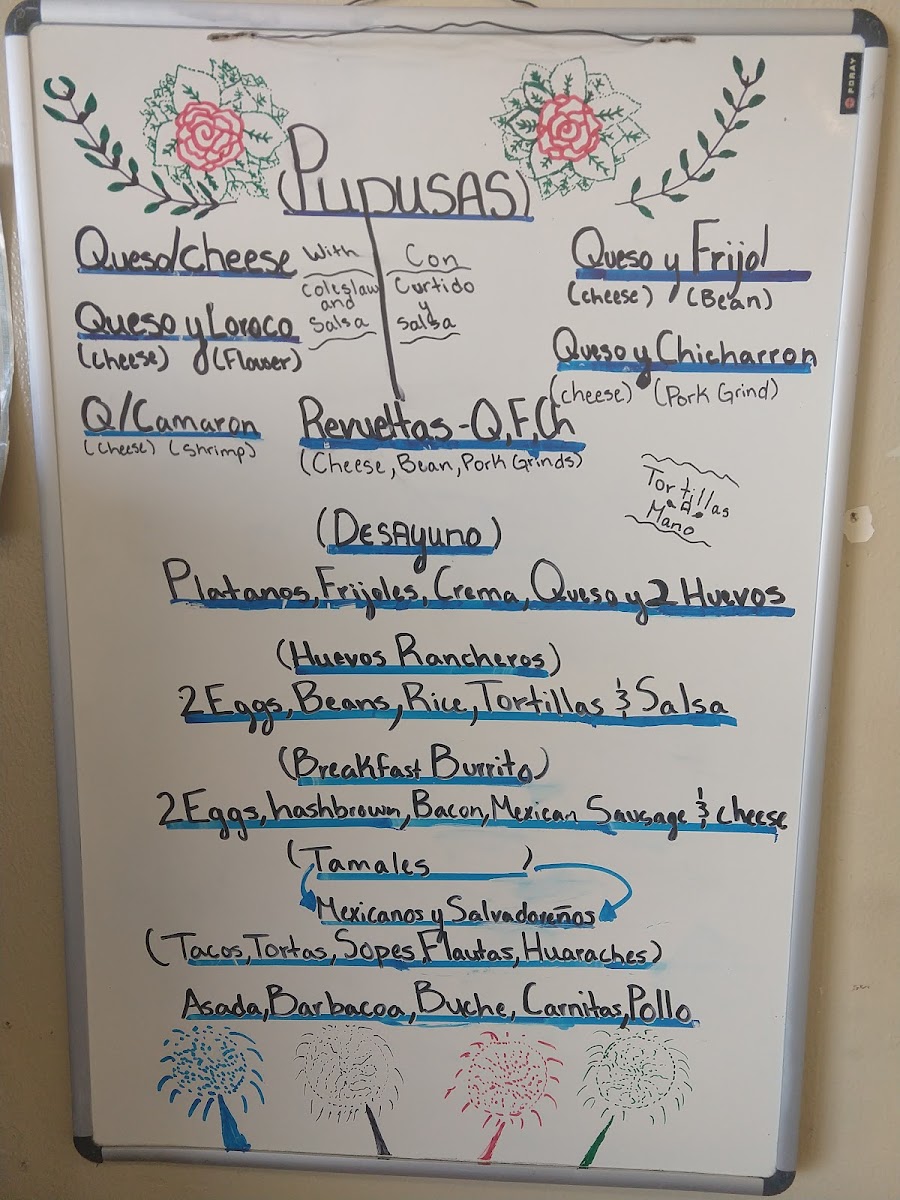 FORAY
(PupusAs)
Queso/Cheese
With
Coleslaw
and
Salsa
Con
Curtido
y
Salsa
Queso y Frijol
(cheese) (Bean)
Queso y Loroco
(cheese) (Flower)
Queso y Chicharron
(cheese) (Pork Grind)
Q/Camaron
(cheese) (shrimp)
Revueltas-Q,F,Ch
(Cheese, Bean, Pork Grinds)
Tortillas
a
Mano
(DesAyuno)
Platanos, Frijoles, Crema, Queso y 2 Huevos
(Huevos Rancheros)
2 Eggs, Beans, Rice, Tortillas & Salsa
(Breakfast Burrito)
2 Eggs, hashbrown, Bacon, Mexican Sausage & cheese
(Tamales )
Mexicanos y Salvadoreños
(Tacos, Tortas, Sopes, Flautas, Huaraches)
Asada, Barbacoa, Buche, Carnitas, Pollo